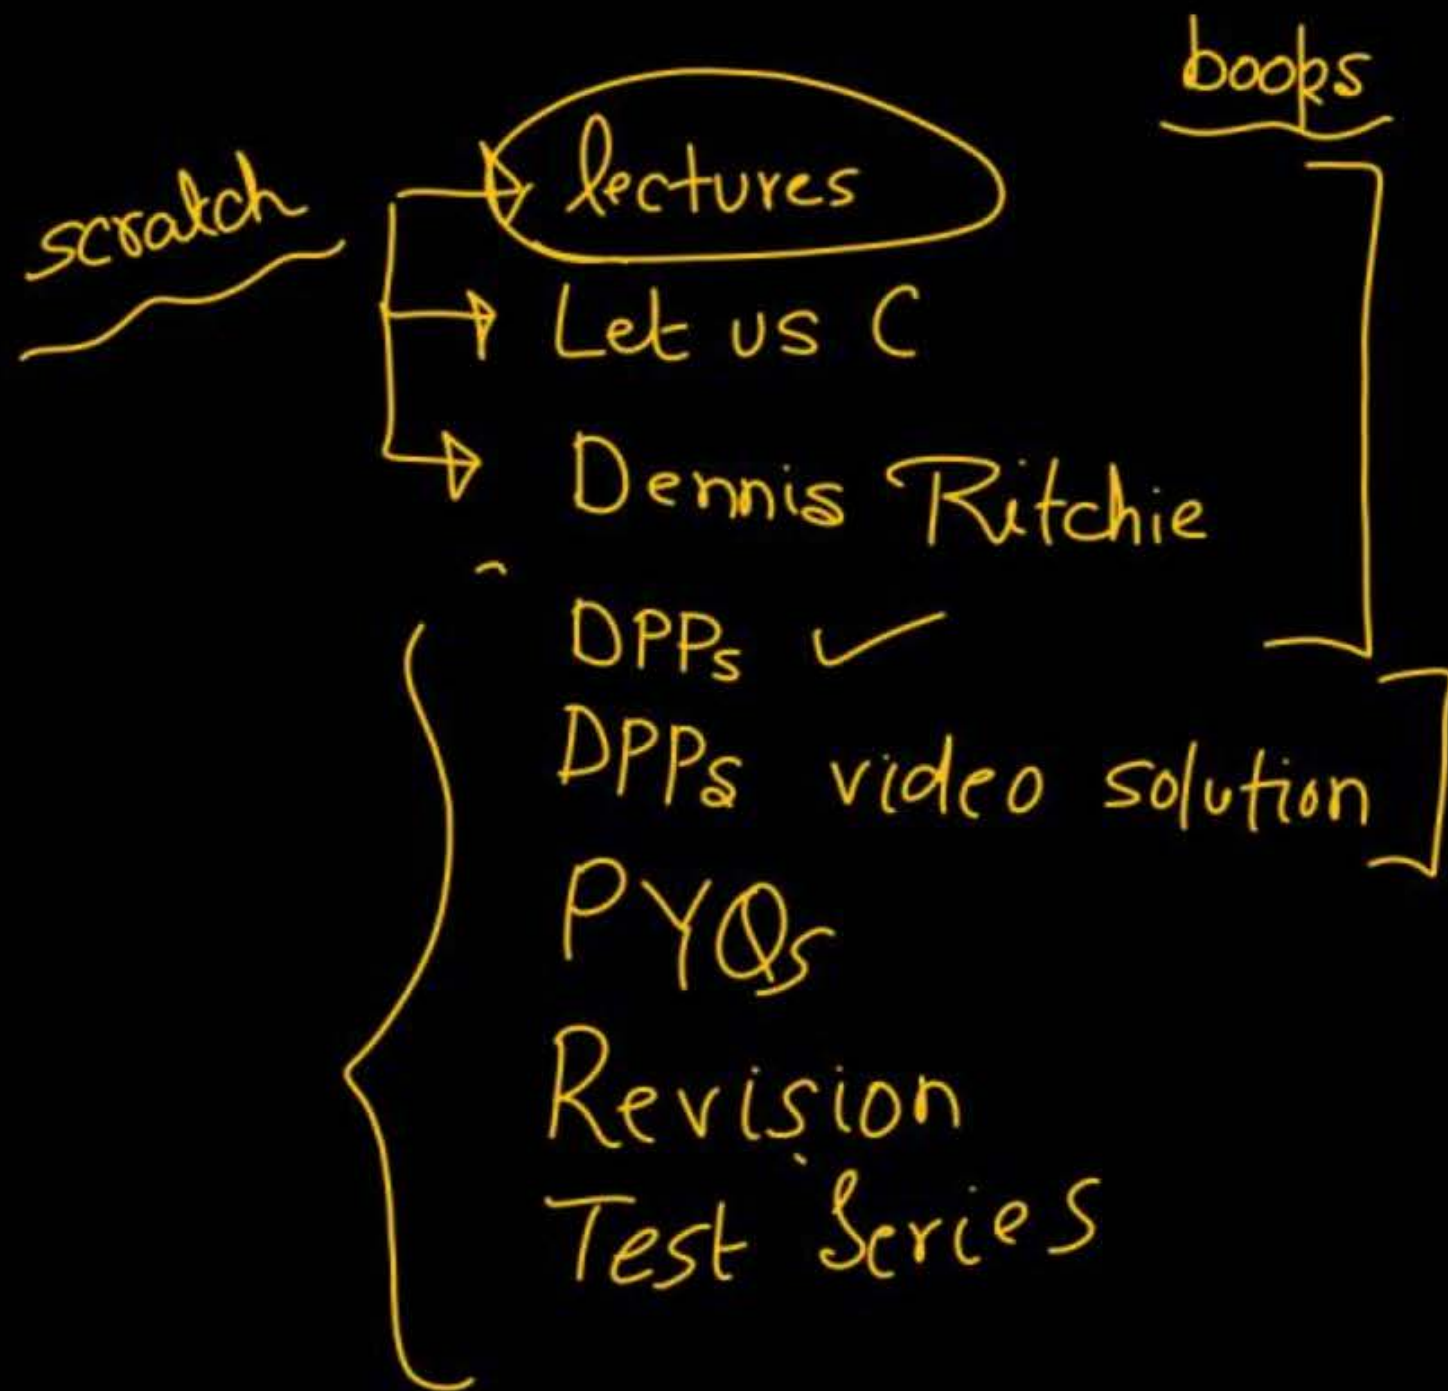 books
scratch
lectures
Let us C
Dennis Ritchie
DPPs
DPPs video solution
PYQs
Revision
Test Series